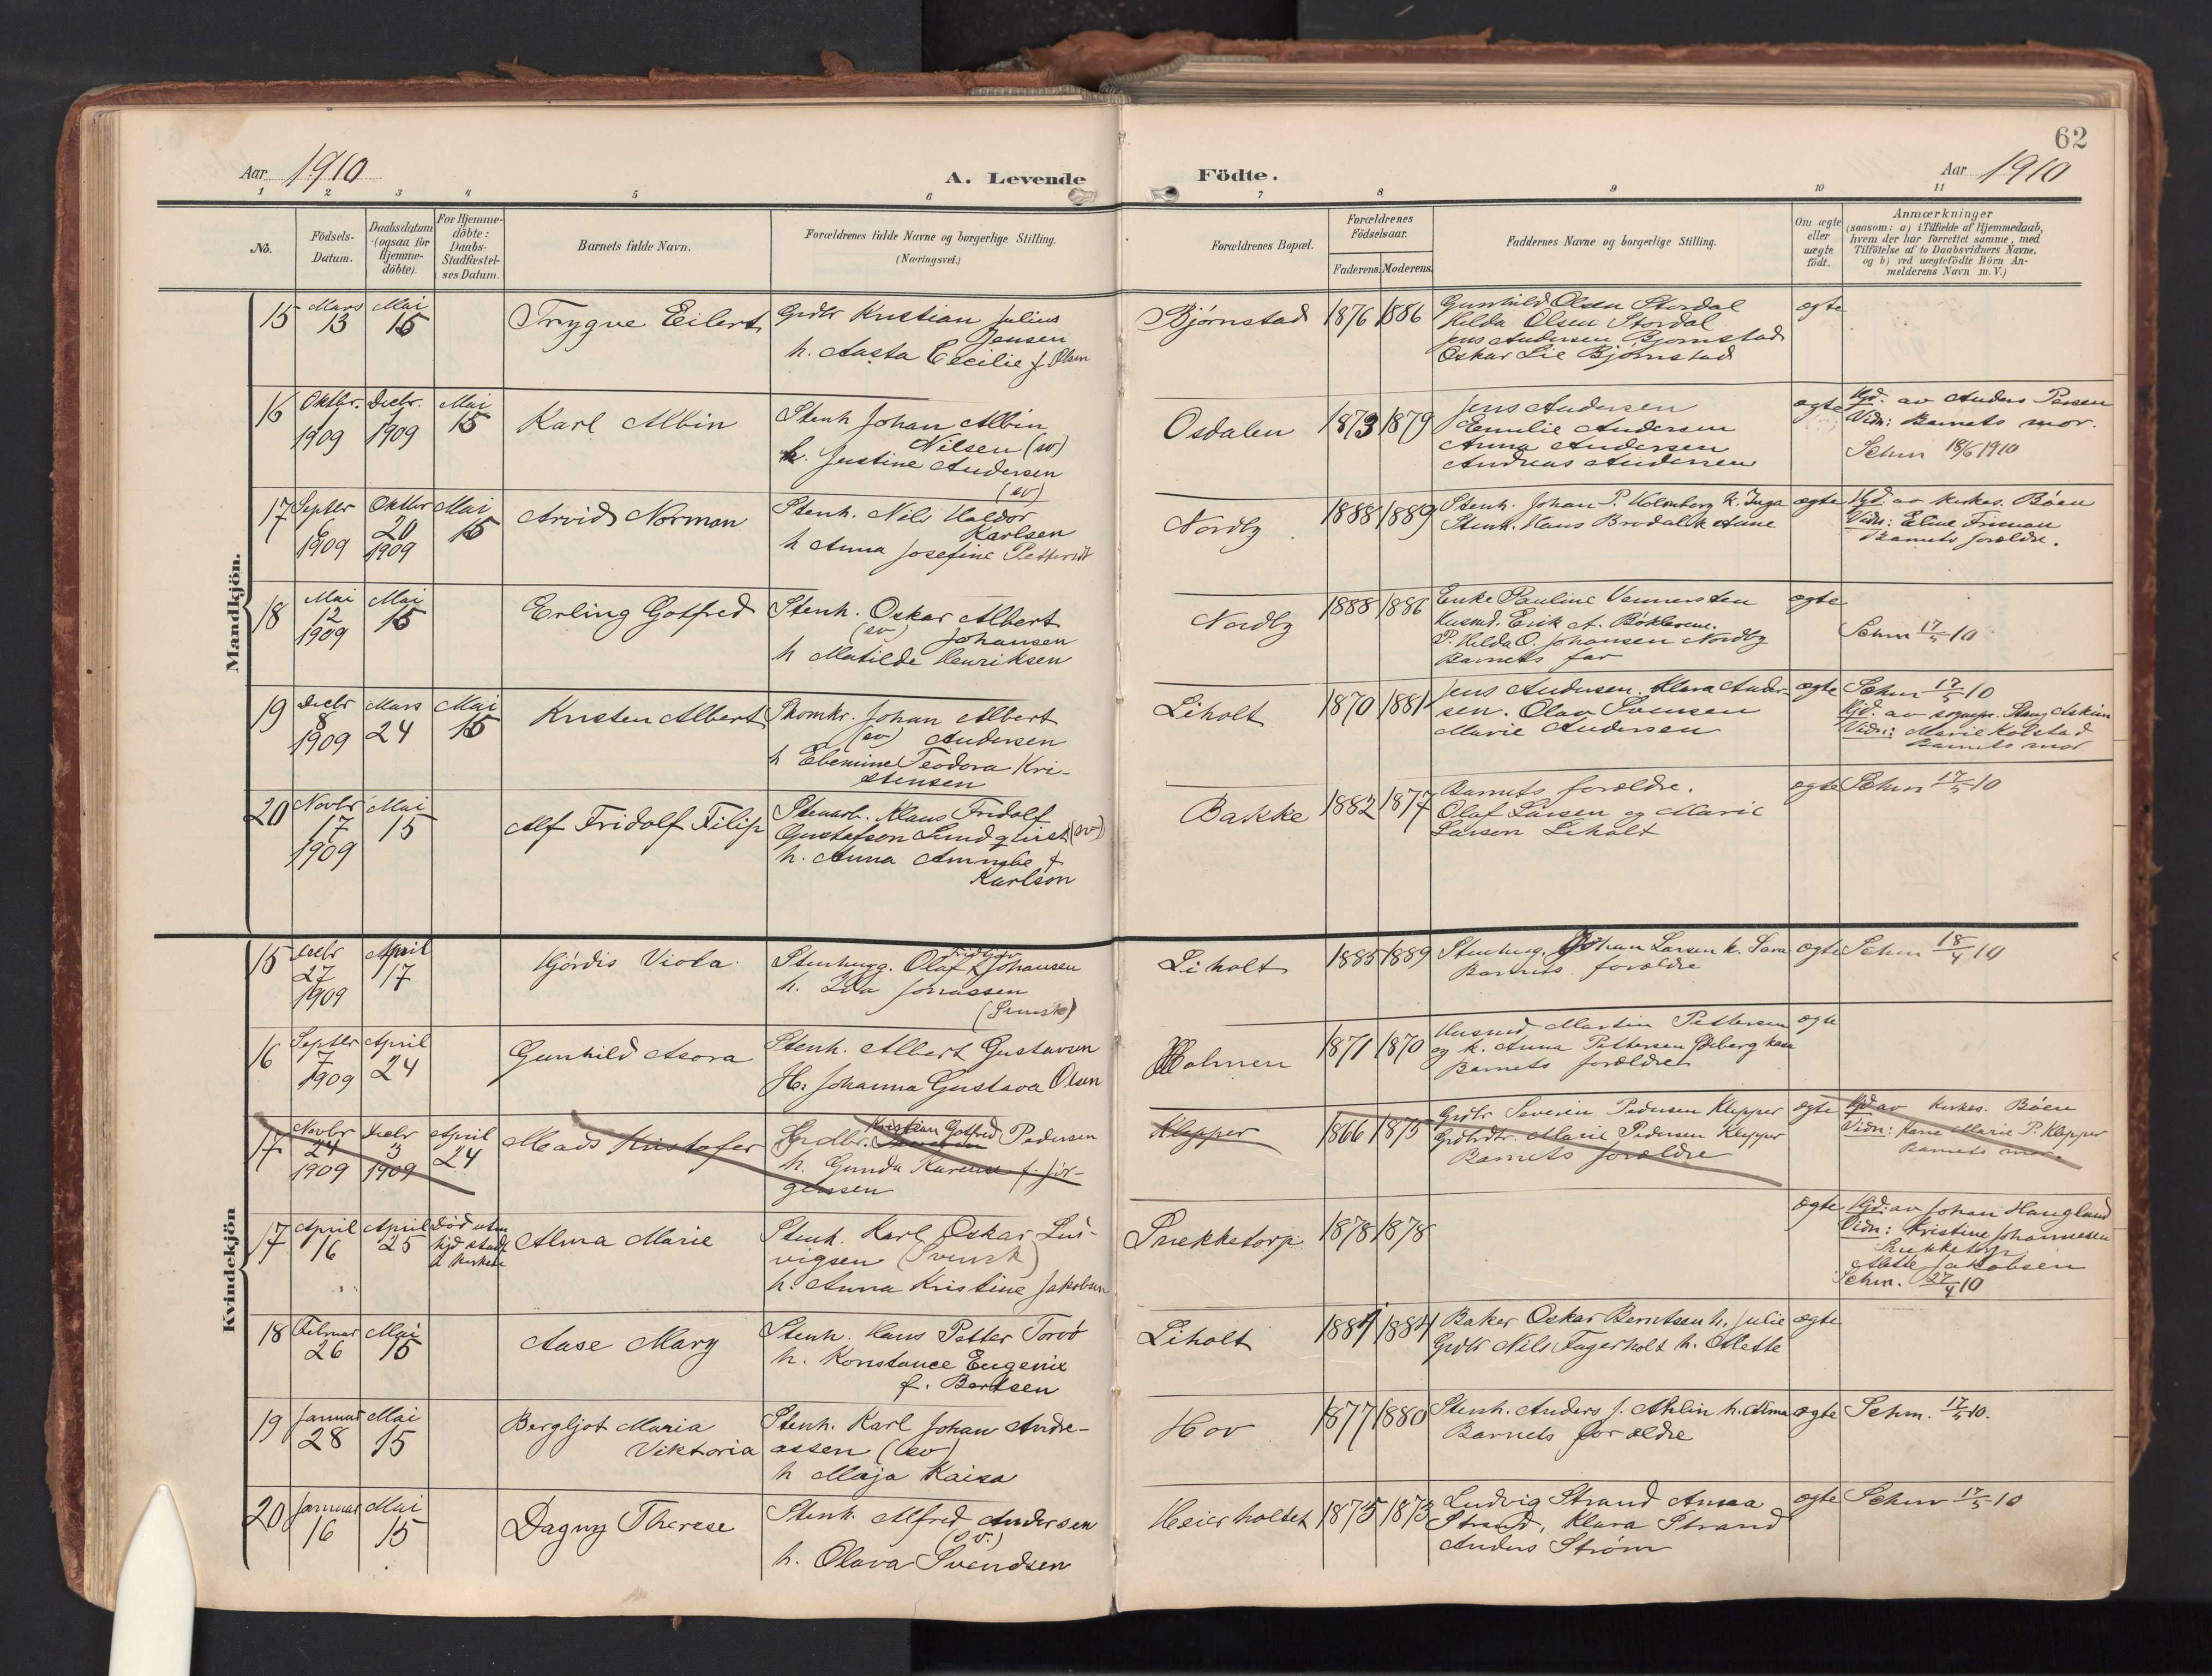 62
Aar 1910
A. Levende
Födte.
Aar 1910
1 2 3 4 5 6 7 8 9 10 11
No.
Födsels-
Datum.
Daabsdatum
(ogsaa for
Hjemme-
döbte).
For Hjemme-
döbte:
Daabs-
Stadfæstel-
ses Datum.
Barnets fulde Navn.
Forældrenes fulde Navne og borgerlige Stilling.
(Næringsvei.)
Forældrenes Bopæl.
Forældrenes
Födselsaar.
Faderens. Moderens.
Faddernes Navne og borgerlige Stilling.
Om ægte
eller
uægte
födt.
Anmærkninger
(saasom: a) i Tilfælde af Hjemmedaab,
hvem der har forrettet samme, med
Tilföielse af to Daabsvidners Navne,
og b) ved uægtefödte Börn An-
melderens Navn m. V.)
Mandkjön.
15
Mars
13
Mai
15
Trygve Eilert
Grdbr Kristian Julius
Jensen
h. Aasta Cecilie f. Olsen
Bjørnstad
1876
1886
Gunhild Olsen Stordal
Hilda Olsen Stordal
Jens Andersen Bjørnstad
Oskar Lie Bjørnstad
ægte
16
Oktbr.
1
1909
Decbr.
1
1909
Mai
15
Karl Albin
Stenh. Johan Albin
Nilsen (sv)
h. Justine Andersen
(sv)
Osdalen
1873
1879
Jens Andersen
Emilie Andersen
Anna Andersen
Andreas Andersen
ægte
Hjd. av Anders Persen
Vidn: Barnets mor.
Schm 18/6 1910
17
Septbr
6
1909
Oktbr
20
1909
Mai
15
Arvid Norman
Stenh. Nils Haldor
Karlsen
h Anna Josefine
Nordby
1888
1889
Stenh. Johan P. Holmberg h. Inga
Stenh. Hans Brødal h. Anne
ægte
Hjd. av kirkes. Bøen
Vidn: Eline Friman
Barnets forældre.
18
Mai
12
1909
Mai
15
Erling Gotfred
Stenh. Oskar Albert
(sv) Johansen
h Matilde Henriksen
Nordby
1888
1886
Enke Pauline Vennersten
Husmd. Erik A.
P. Hilda O. Johansen Nordby
Barnets far
ægte
Schm 17/5 10
19
Decbr
8
1909
Mars
24
Mai
15
Kristen Albert
Stomkr. Johan Albert
(sv) Andersen
h Ebemine Teodora Kri-
stensen
Liholt
1870
1881
Jens Andersen. Klara Ander-
sen. Olav Svensen
Marie Andersen
ægte
Schm 17/5 10
Hjd. av sognepr. Stang Askim
Vidn: Marie Kolstad
Barnets mor
20
Novbr
17
1909
Mai
15
Alf Fridolf Filip
Stenarb. Klaus Fridolf
Gustafson Lindqvist (sv)
h. Anna f
Karlson
Bakke
1882
1877
Barnets forældre.
Olaf Larsen og Marie
Larsen Liholt
ægte
Schm 17/5 10
Kvindekjön
15
Decbr
27
1909
April
17
Hjørdis Viola
Stenhugg. Olaf Fridtjov Johansen
h. Ida Jonassen
(Svensk)
Liholt
1885
1889
Stenhug. Johan Larsen h. Sara
Barnets forældre
ægte
Schm 18/4 10
16
Septbr
7
1909
April
24
Gunhild Asora
Stenh. Albert Gustavsen
H: Johanna Gustava Olsen
Holmen
1871
1870
Husmd Martin Pettersen
og h. Anna Pettersen
Barnets forældre
ægte
17
Novbr
24
1909
Decbr
3
1909
April
24
Mads Kristofer
Grdbr. Kristian Gotfred Pedersen
h. Gunda Karense f. Jör-
gensen
Klepper
1866
1875
Grdbr Severin Pedersen Klepper
Grdbrdtr. Marie Pedersen Klepper
Barnets forældre
ægte
Hjd av kirkes. Bøen
Vidn: Karen Marie P. Klepper
Barnets mor.
17
April
16
April
25
Død uten
hjd stadf
i kirken
Alma Marie
Stenh. Karl Oskar Lud-
vigsen (Svensk)
h. Anna Kristine Jakobsen
Snekketorp
1878
1878
ægte
Hjd: av Johan Haugland
Vidn: Kristine Johannesen
Snekketorp
Mette Jakobsen
Schm. 27/4 10
18
Februar
26
Mai
15
Aase Mary
Stenh. Hans Petter Torvö
h. Konstance Eugenie
f. Berntsen
Liholt
1884
1884
Baker Oskar Berntsen h. Julie
Grdbr Nils Fagerholt h. Mette
ægte
19
Januar
28
Mai
15
Bergljot Maria
Viktoria
Stenh. Karl Johan Andre-
assen (sv)
h Maja Kaisa
Hov
1877
1880
Stenh. Anders J. Ahlin h. Alma
Barnets forældre
ægte
Schm. 17/5 10.
20
Januar
16
Mai
15
Dagny Therese
Stenh. Alfred Andersen
(sv.)
h. Olava Svendsen
Heierholtet
1875
1873
Ludvig Strand Anna
Strand, Klara Strand
Anders Strøm
ægte
Schm 17/5 10